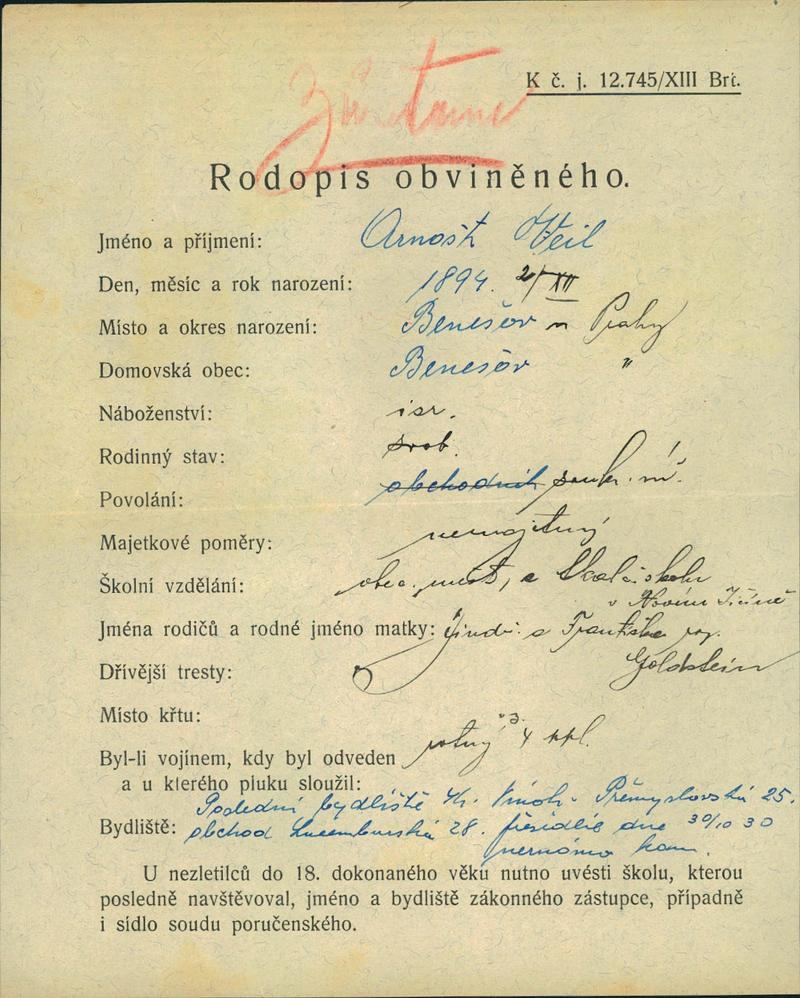 K č. j. 12.745/XIII Brt.
Rodopis obviněného.
Jméno a příjmení: Arnošt Weil
Den, měsíc a rok narození: 1894. 2/XII
Místo a okres narození: Benešov u Prahy
Domovská obec: Benešov "
Náboženství: isr.
Rodinný stav: svob.
Povolání: obchodník soukr. úř.
Majetkové poměry: nemajetný
Školní vzdělání: obec. měšť, a škola
v Novém Jičíně
Jména rodičů a rodné jméno matky: Jindř. a Františka roz.
Goldstein
Dřívější tresty:
Místo křtu:
Byl-li vojínem, kdy byl odveden
a u kterého pluku sloužil:
Poslední bydliště Kr. Vinoh. Přemyslovská 25.
Bydliště: obchod Lucemburská 28. přesídlil dne 30/10 30
neznámo kam.
U nezletilců do 18. dokonaného věku nutno uvésti školu, kterou
posledně navštěvoval, jméno a bydliště zákonného zástupce, případně
i sídlo soudu poručenského.